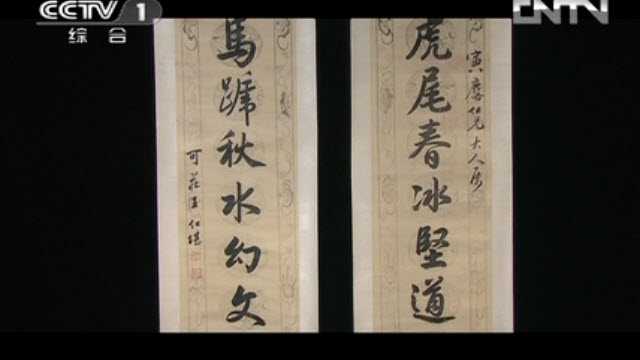 CCTV 1
综合
CNTV
寅盦仁兄大人属
虎尾春冰坚道
馬蹏秋水幻文
可莊王仁堪